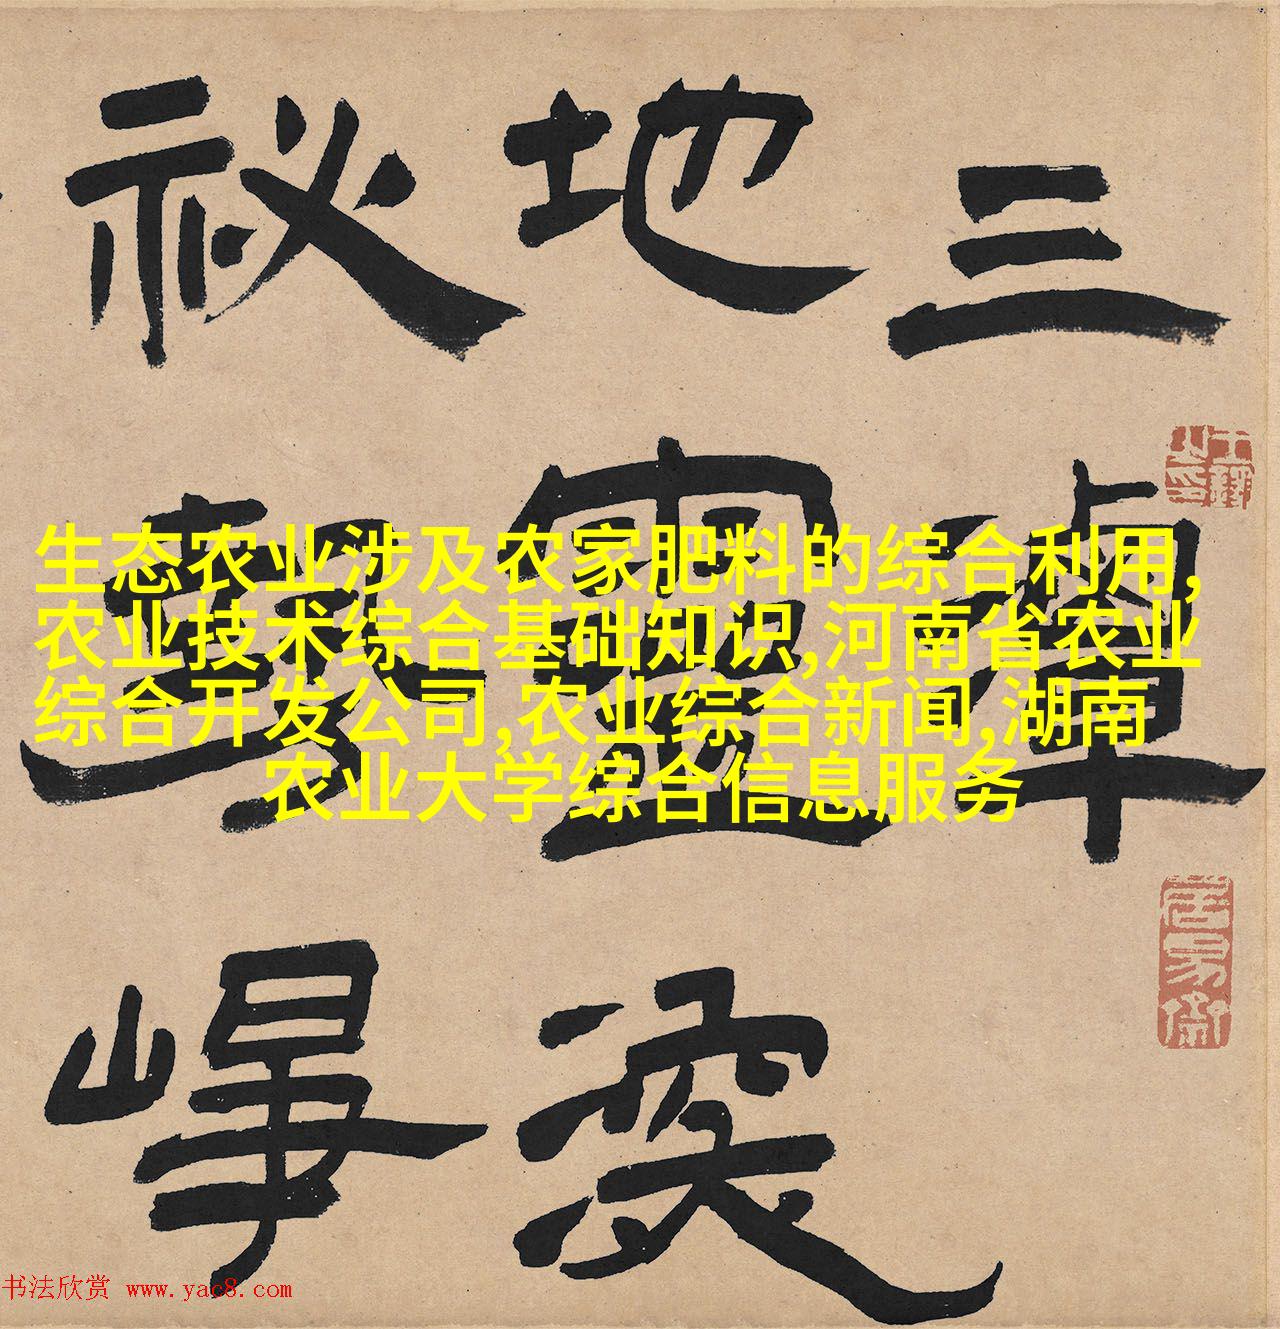 三
地靈
祕
生态农业涉及农家肥料的综合利用,
农业技术综合基础知识,河南省农业
综合开发公司,农业综合新闻,湖南
农业大学综合信息服务
书法欣赏 www.yac8.com